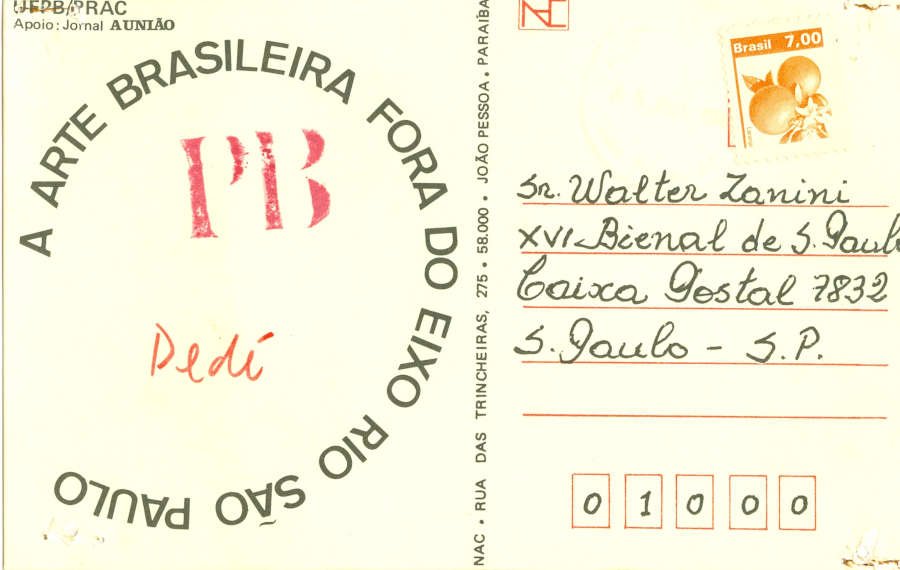 UFPB/PRAC
Apoio: Jornal A UNIÃO
A ARTE BRASILEIRA FORA DO EIXO RIO SÃO PAULO
PB
Dedí
NAC • RUA DAS TRINCHEIRAS, 275 • 58.000 • JOÃO PESSOA • PARAÍBA
Brasil 7,00
Sr. Walter Zanini
XVI Bienal de S. Paulo
Caixa Postal 7832
S. Paulo - S.P.
0 1 0 0 0